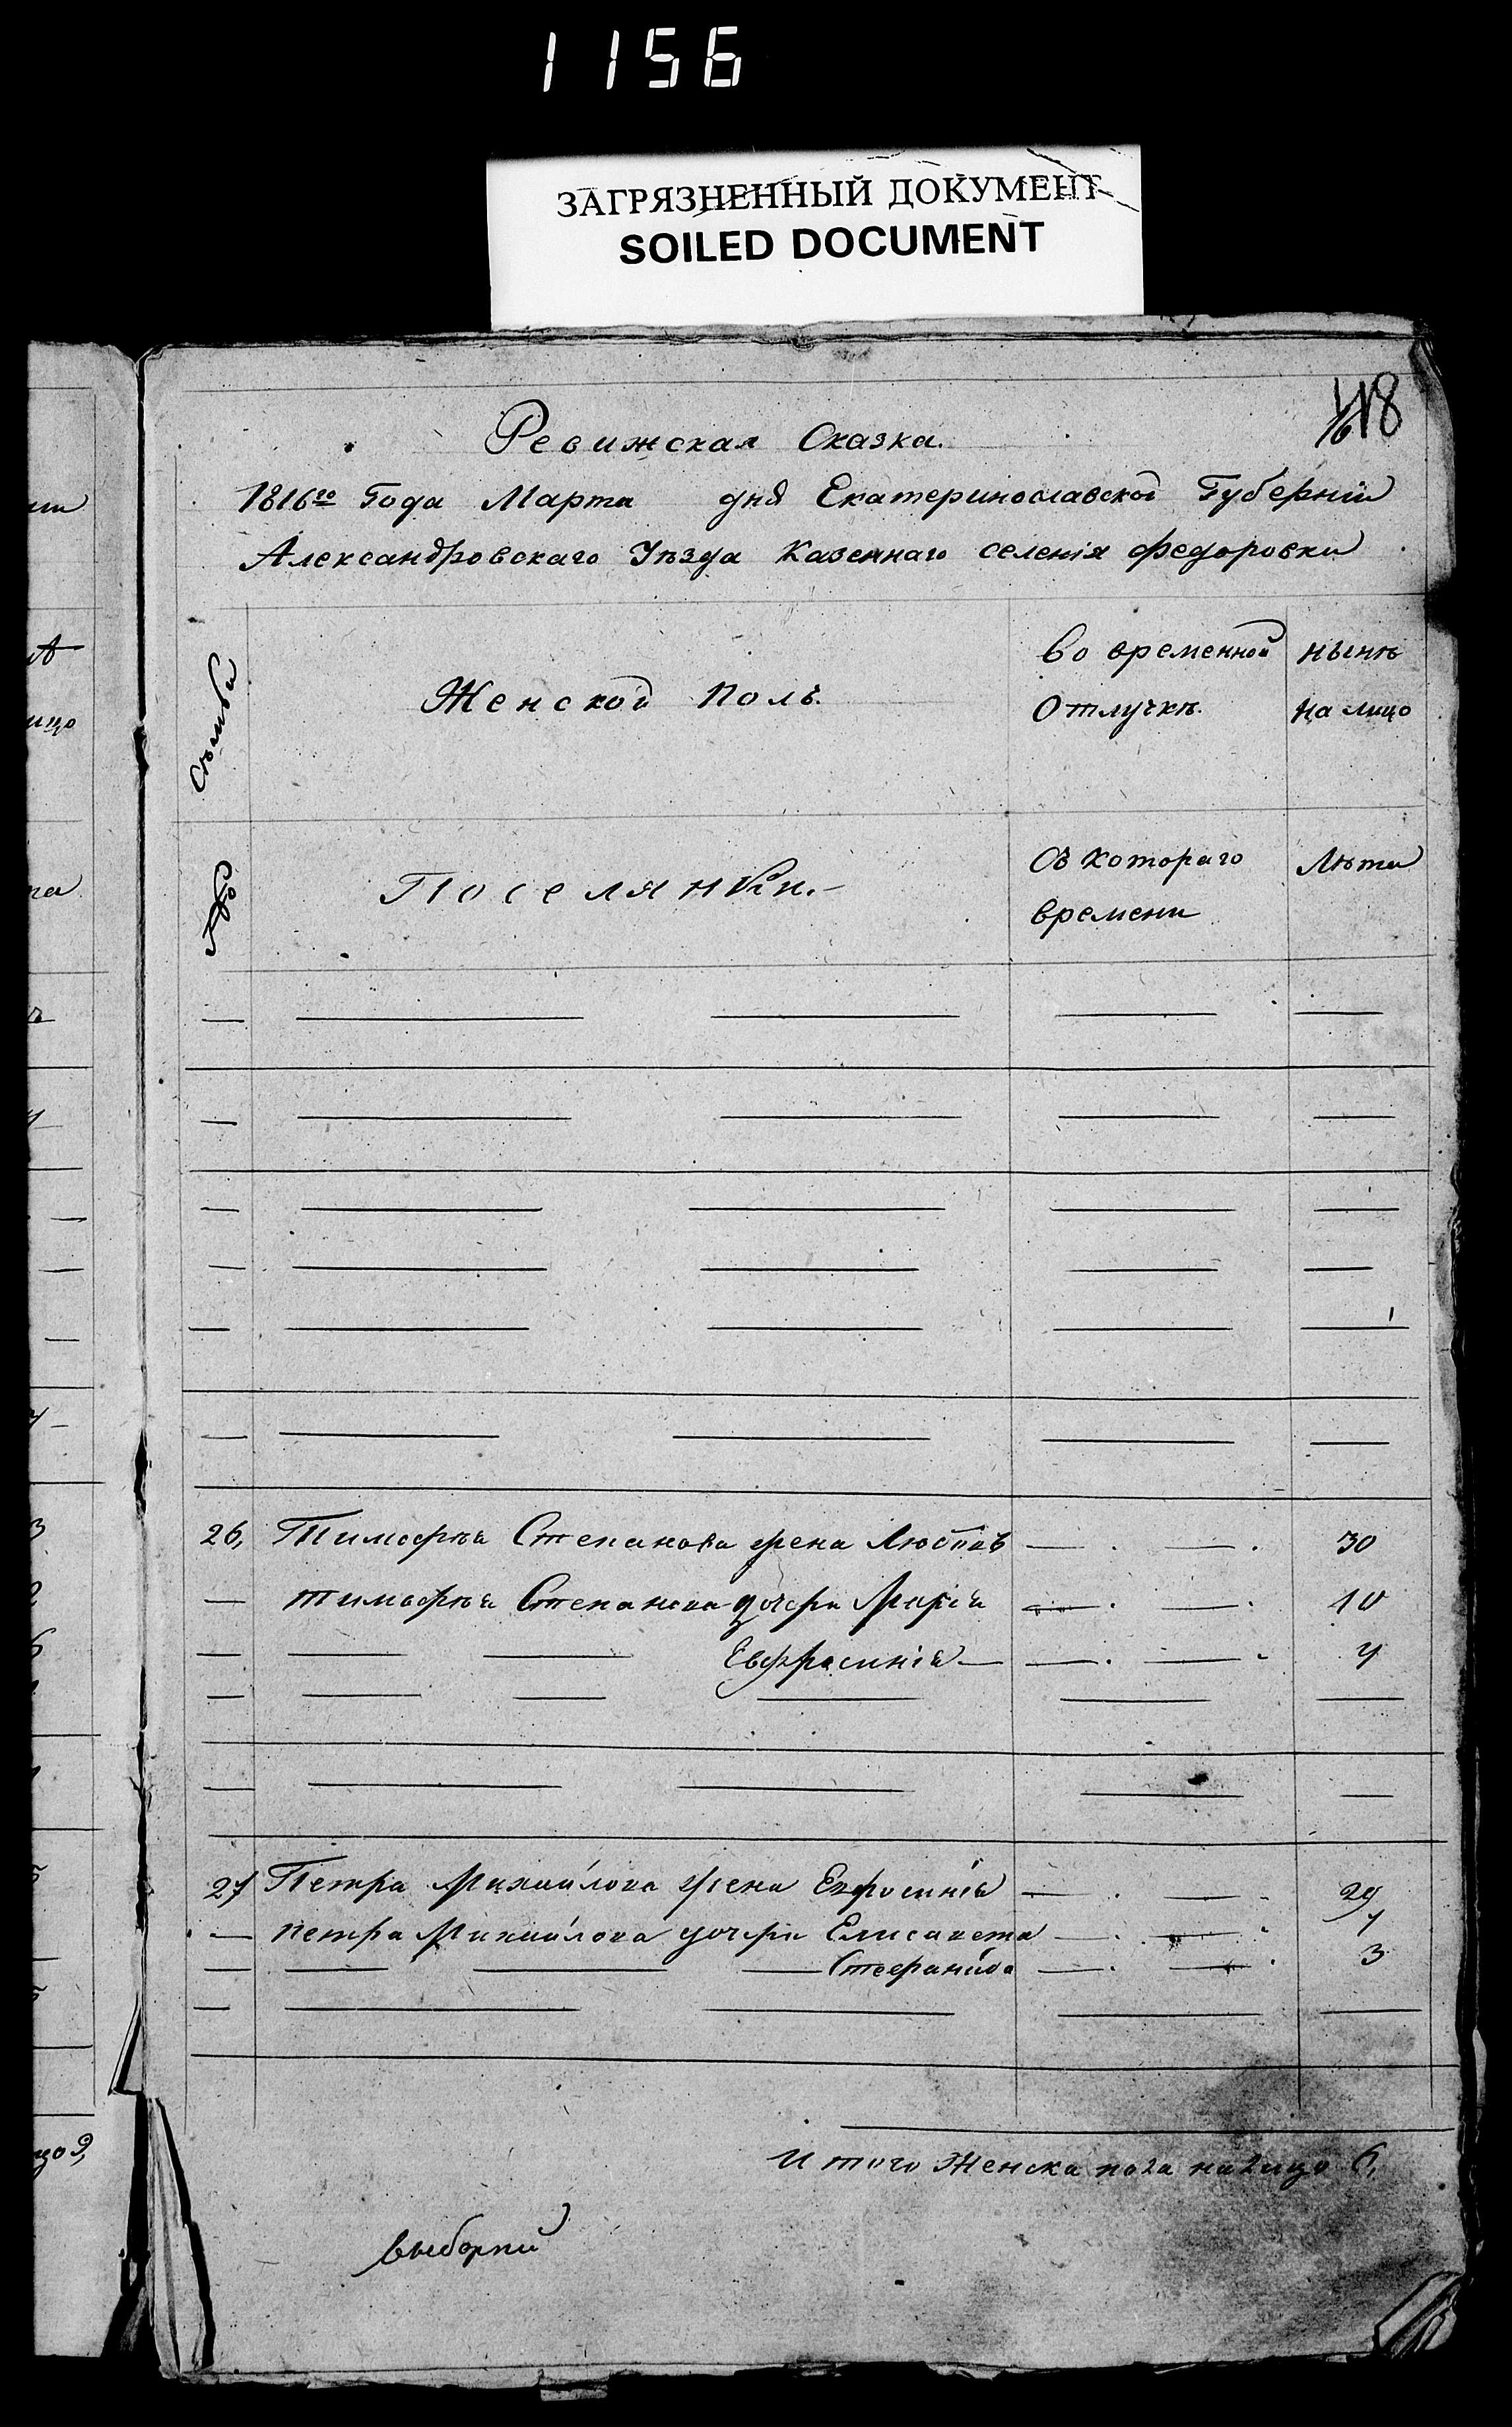 1156
ЗАГРЯЗНЕННЫЙ ДОКУМЕНТ
SOILED DOCUMENT
118
Ревижская Сказка.
1816го Года Марта дня Екатеринославской Губерніи
Александровскаго Уѣзда Казеннаго селенія Федоровки
Семьи
Женской полъ.
Во временной отлучкѣ.
нынѣ на лицо
№
Поселянки.
Съ котораго времени
Лѣта
26, Тимофѣя Степанова жена Любовь 30
Тимофѣя Степанова дочери Марія 10
Евфросинія 4
27 Петра Михайлова жена Ефросинія 29
Петра Михайлова дочери Елисавета 7
Стефанида 3
Итого Женска пола налицо 6,
выборни